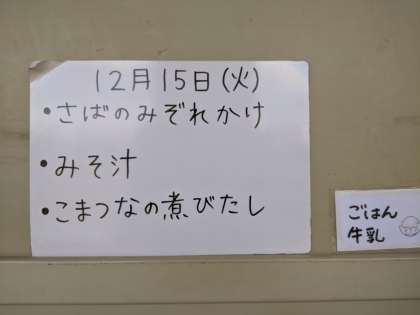 12月15日(火)
・さばのみぞれかけ
・みそ汁
・こまつなの煮びたし
ごはん
牛乳